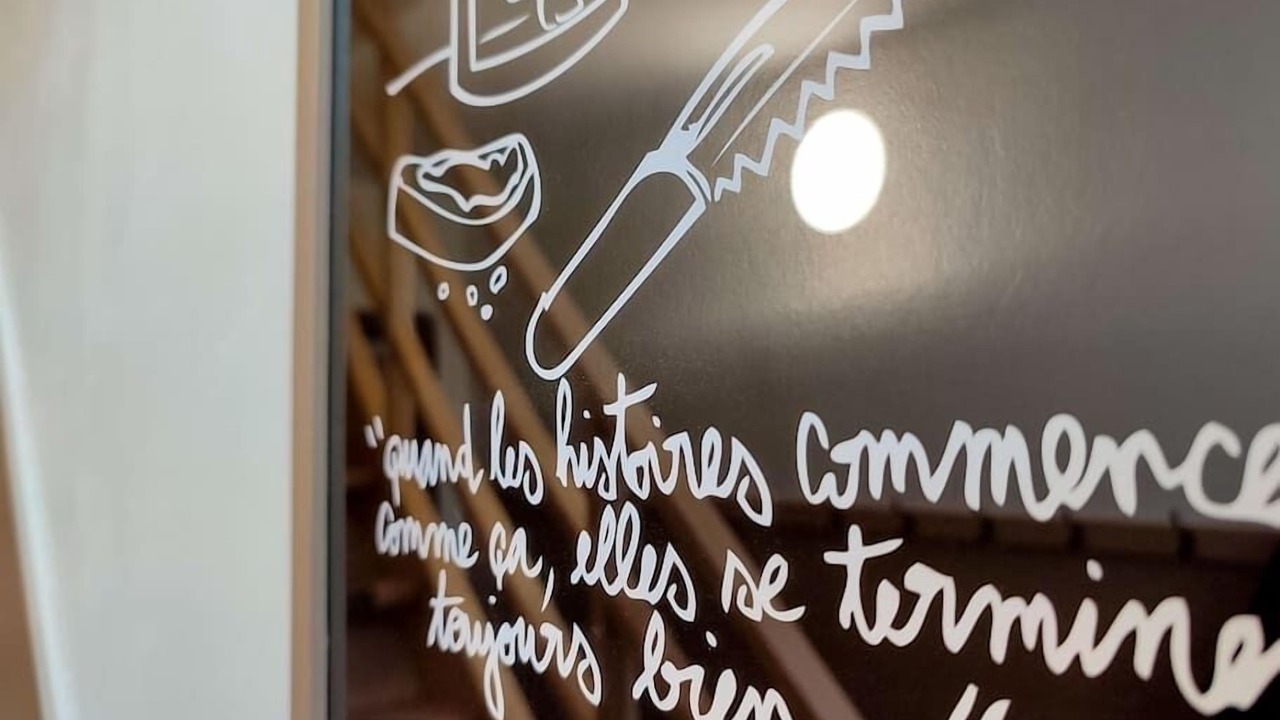 "quand les histoires commence
comme ça, elles se termine
toujours bien